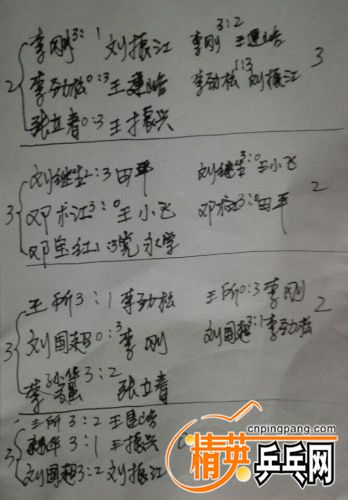 李刚 3:1 刘振江 李刚 3:2 王建皓
2 李劲松 0:3 王建皓 李劲松 1:3 刘振江 3
张立春 0:3 王振兴
刘继生 2:3 田平 刘继生 3:0 王小飞
3 邓永江 3:0 王小飞 邓永江 3:0 田平 2
邓宝红 1:3 永学
王所 3:1 李劲松 王所 0:3 李刚
3 刘国超 0:3 李刚 刘国超 3:1 李劲松 2
3:2 张立春
王所 3:2 王建皓
3 3:1 王振兴
刘国超 3:2 刘振江
cnpingpang.com
精英乒乓网